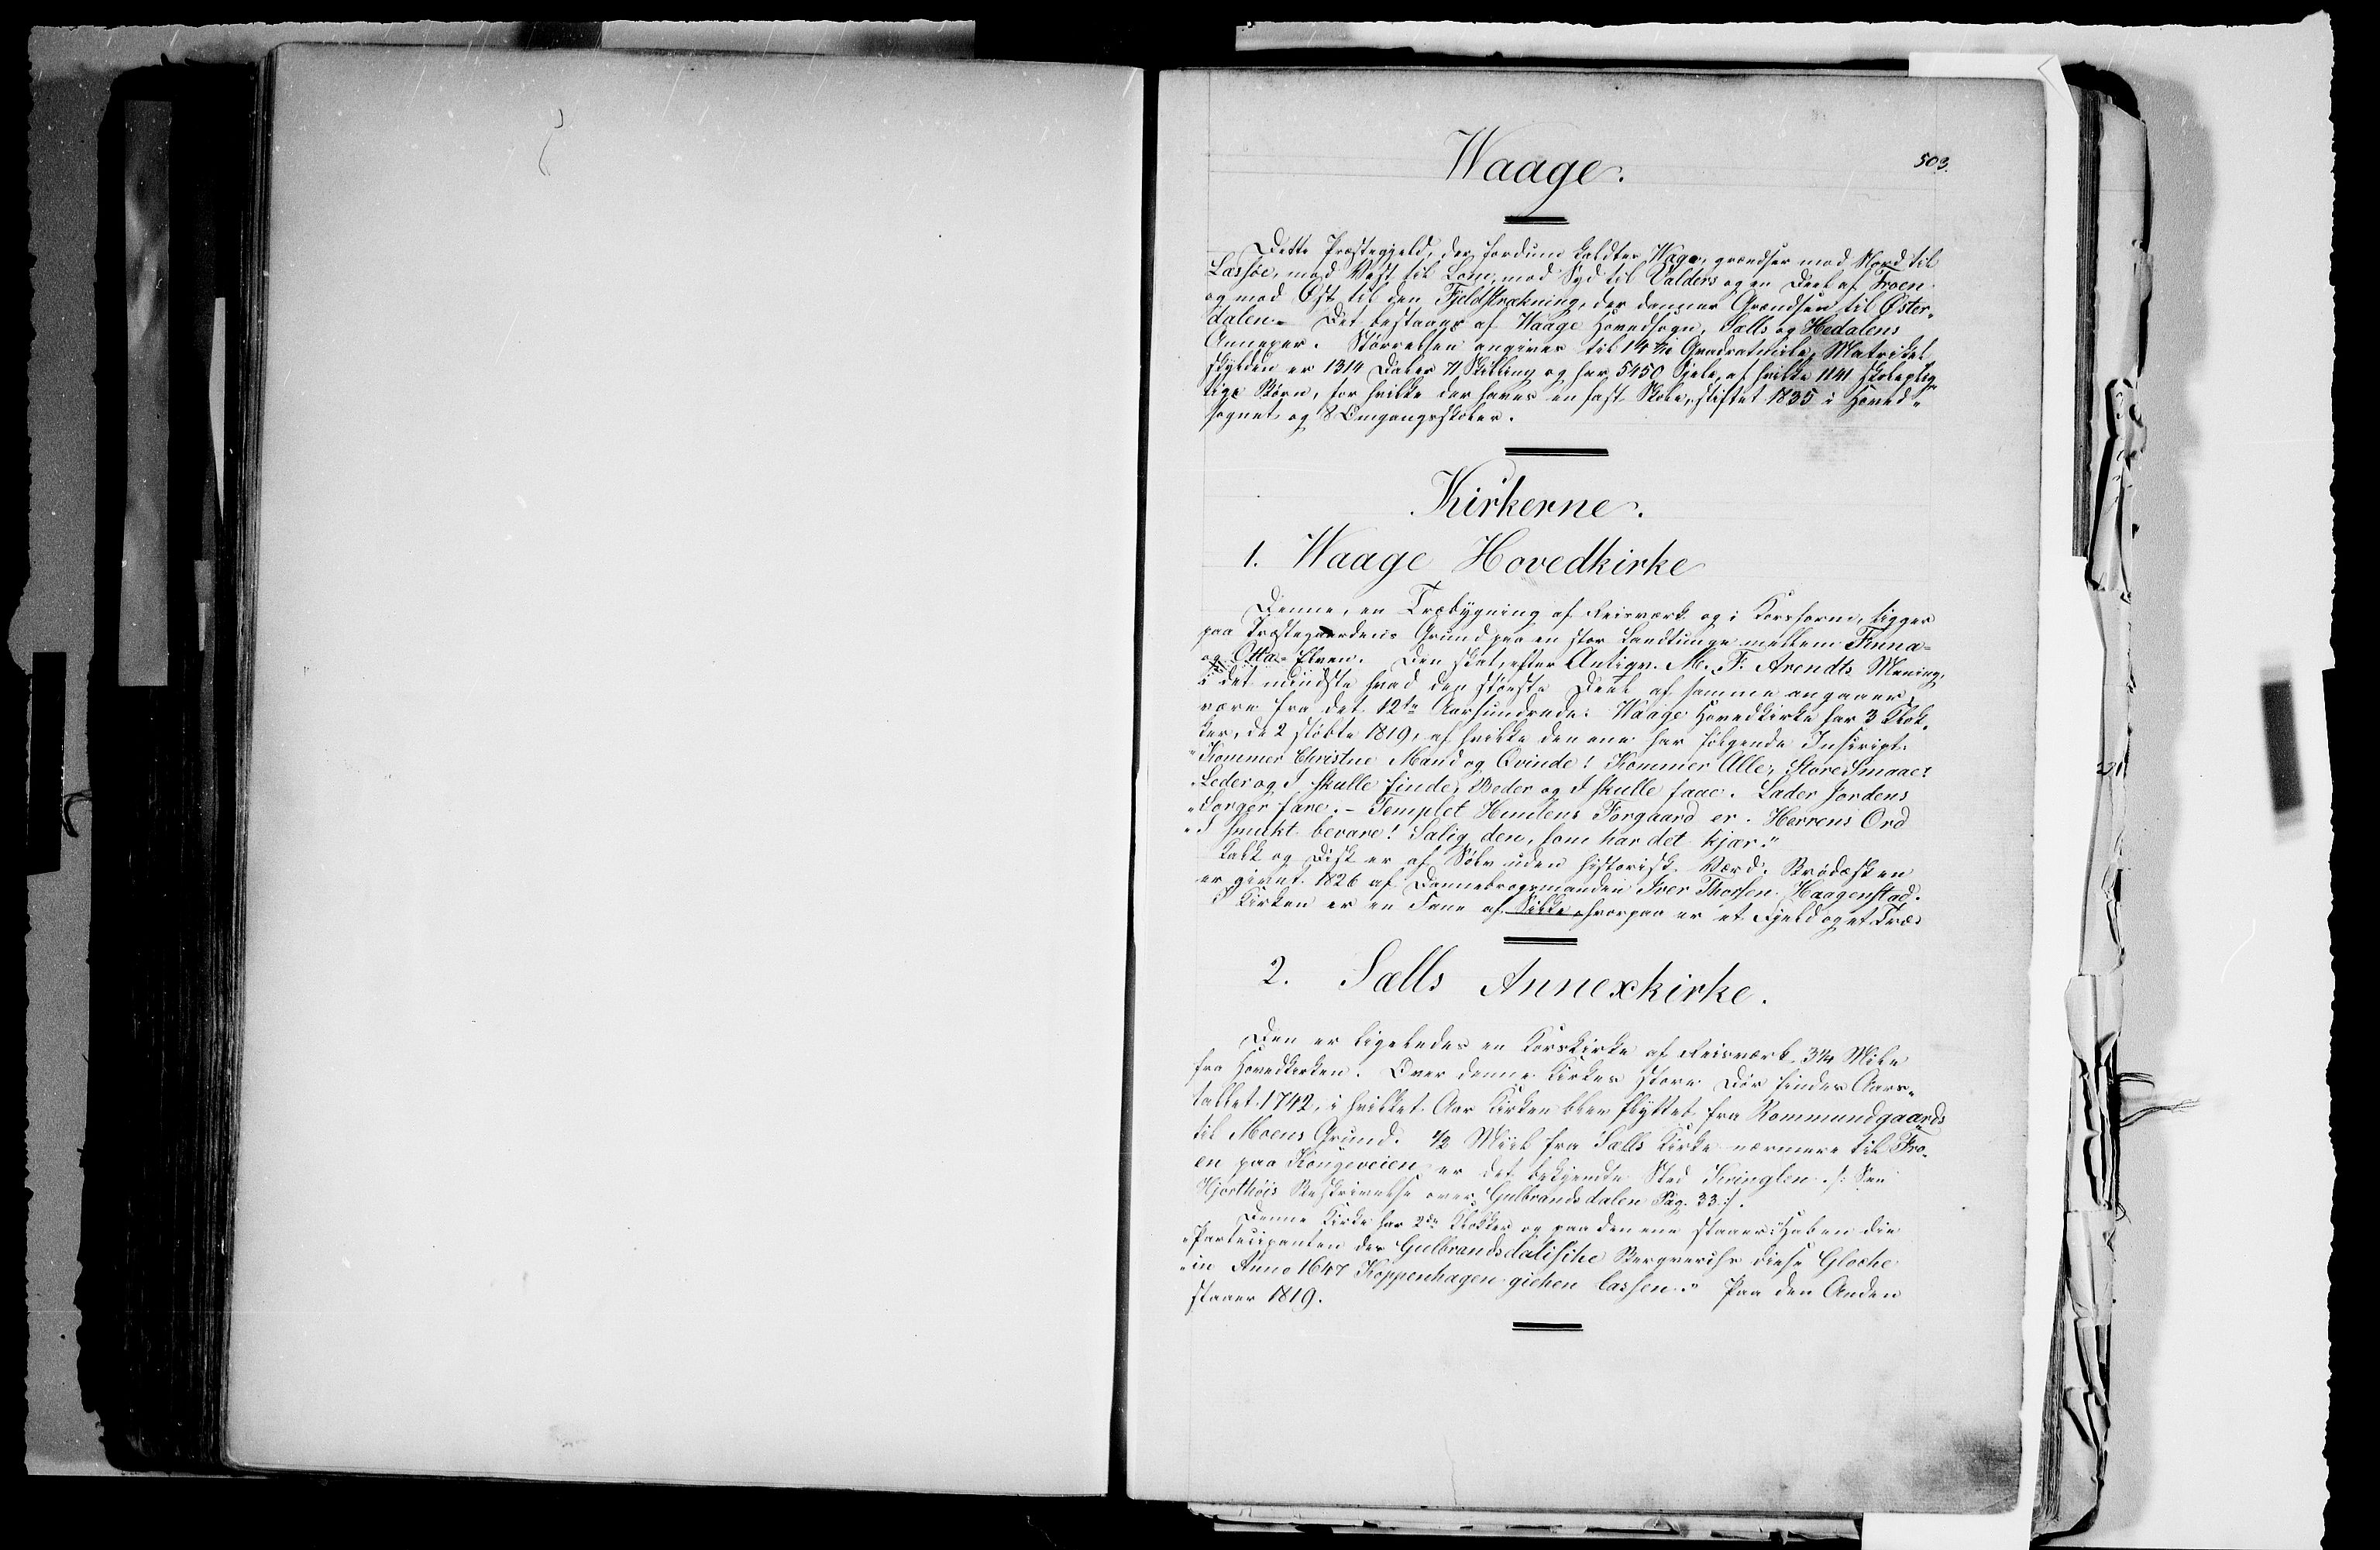 503.
Waage.
Dette Præstegjeld, der fordum kaldtes Wage, grændser mod Nord til
Lassøe, mod Vest til Lom, mod Syd til Valders og en Deel af Froen
og mod Øst til den Fjeldstrækning, der danner Grændsen til Øster-
dalen. Det bestaaer af Waage Hovedsogn, Sælls og Hedalens
Annexer. Størrelsen angives til 14 Qvadratmile, Matrikel
skylden er 1314 Daler 71 Skilling og har 5450 Sjele, af hvilke 1141 skoleplig-
tige Børn, for hvilke der haves en fast Skole, stiftet 1835 i Hoved-
sognet og 8 Omgangsskoler.
Kirkerne.
1. Waage Hovedkirke
Denne, en Træbygning af Reisværk og i Korsform, ligger
paa Præstegaardens Grund paa en stor Landtunge mellem Finna-
og Otta-Elven. Den skal, efter Antiqv. M. F. Arendts Mening,
i det mindste hvad den største Deel af samme angaaer,
være fra det 12te Aarhundrede. Waage Hovedkirke har 3 Klok-
ker, de 2 støbte 1819, af hvilke den ene har følgende Inscript.
"Kommer Christne Mand og Qvinde! Kommer Alle, Store Smaae!
"Leder og I skulle finde, Beder og I skulle faae. Lader Jordens
"Sorger fare. - Templet Himlens Forgaard er. Herrens Ord
"I smukt bevare! Salig den, som har det kjær."
Kalk og Disk er af Sølv uden historisk Værd. Brødæsken
er givet 1826 af Dannebrogsmanden Iver Thorsen Haagenstad.
I Kirken er en Fane af Silke, hvorpaa er et Fjeld og et Træ.
2. Sælls Annexkirke.
Den er ligeledes en Korskirke af Reisværk, 3 1/4 Mile
fra Hovedkirken. Over denne Kirkes store Dør findes Aars-
tallet 1742, i hvilket Aar Kirken blev flyttet fra Rommundgaards
til Moens Grund. 1/2 Miil fra Sælls Kirke nærmere til Fro-
en paa Kongeveien er det bekjendte Sted Kringlen /: See
Hjorthøis Beskrivelse over Gulbrandsdalen Pag. 33 :/.
Denne Kirke har 2de Klokker og paa den ene staaer: "Haben die
"Participanten der Gulbrandsdalische Bergwerchs diese Glocke
"in Anno 1647 Koppenhagen giehen lassen." Paa den Anden
staaer 1819.